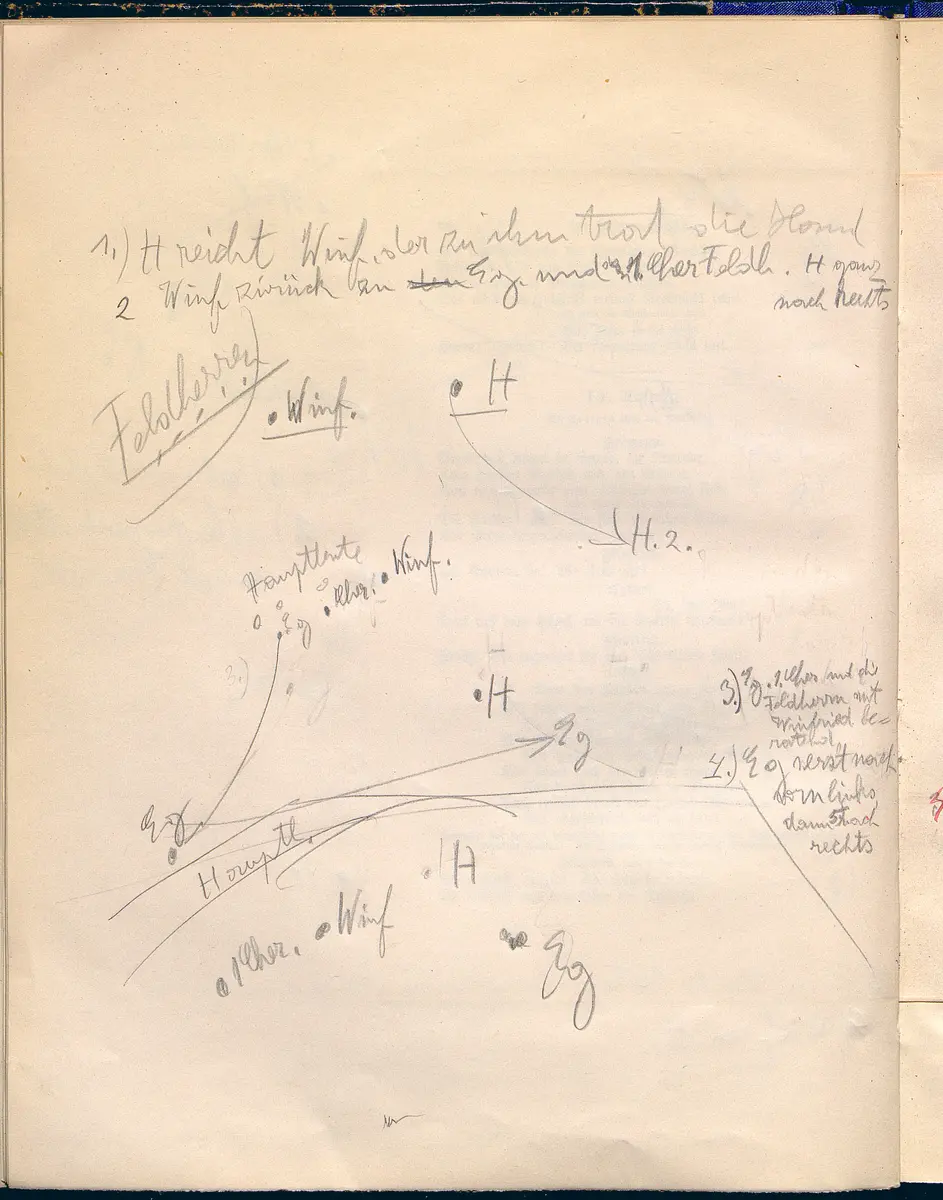 1.) H reicht Winf. der zu ihm trat die Hand
2 Winf. zurück zu Eg. und Cher Feldh. H ganz
nach Rechts
Feldherren
Winf.
H
H. 2.
Hauptleute
Eg
Cher.
Winf.
3.)
H
H
Eg
3.) Eg. Cher und die
Feldherrn mit
Winfried be=
ratend
4.) Eg erst nach
vorn links,
dann nach
rechts
Eg.
Hauptl.
H
Winf
Cher.
Eg